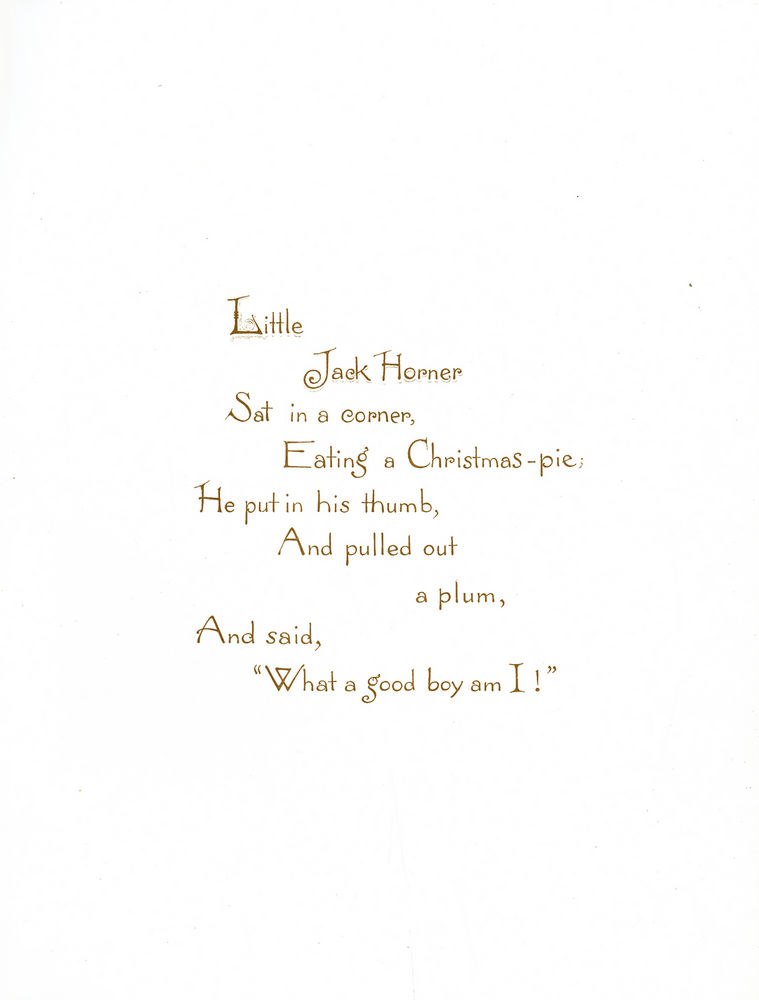 Little
Jack Horner
Sat in a corner,
Eating a Christmas-pie;
He put in his thumb,
And pulled out
a plum,
And said,
“What a good boy am I!”